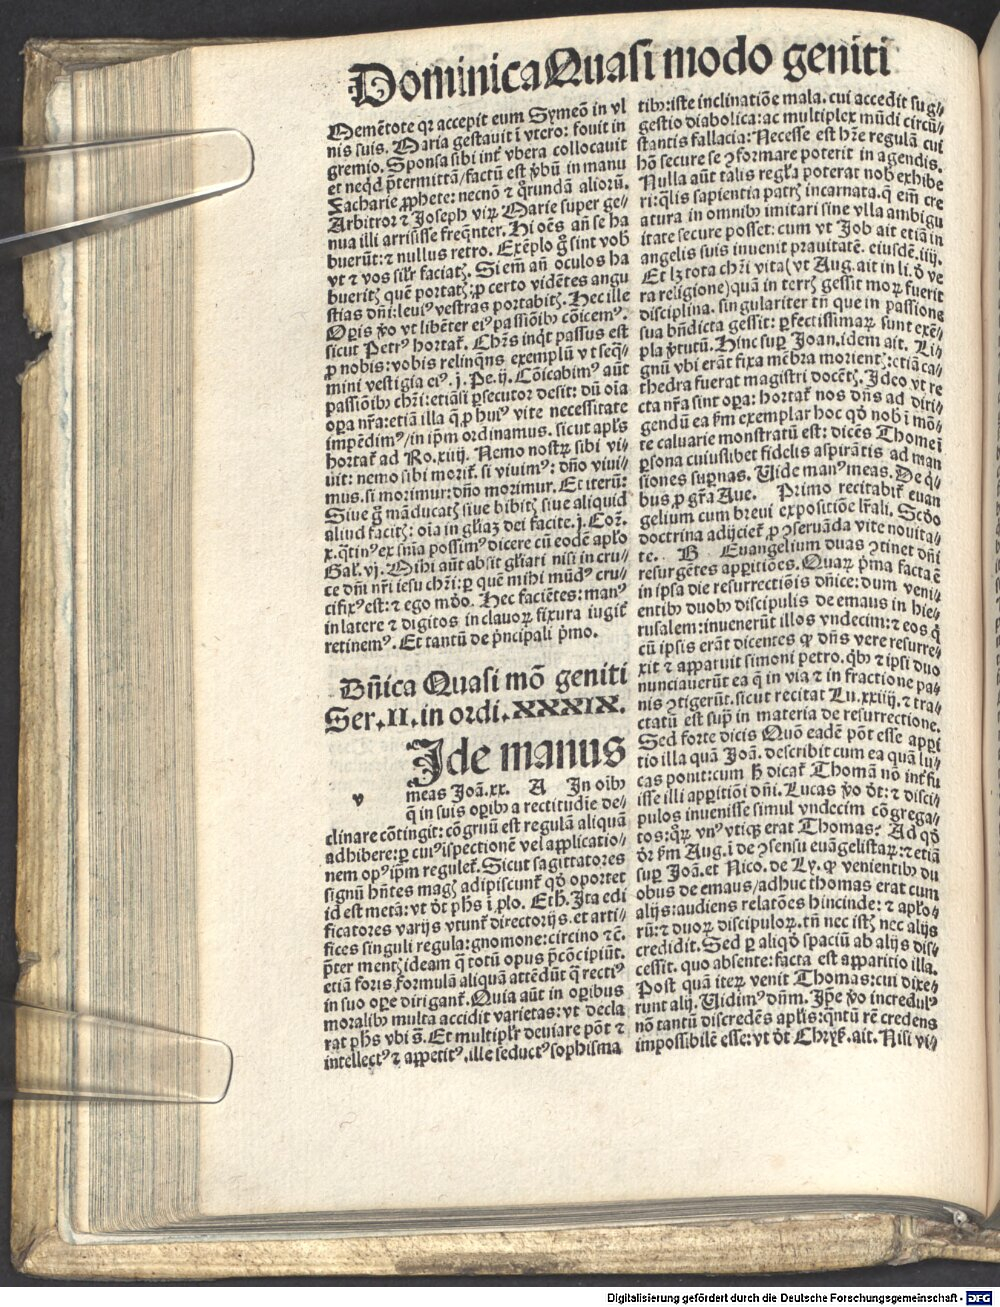 Dominica Quasi modo geniti
Memētote qꝛ accepit eum Symeō in vl
nis suis. Maria gestauit ī vtero: fouit in
gremio. Sponsa sibi int᷑ vbera collocauit
et neqd p̄termittā/factū est v̄bū in manu
Zacharie ꝓphete: necnō ⁊ q̊rundā alioꝛū.
Arbitroꝛ ⁊ Joseph viꝝ Marie super ge⸗
nua illi arrisisse freq̄nter. Hi oēs añ se ha
buerūt: ⁊ nullus retro. Exēplo g̊ sint vob̄
vt ⁊ vos silr̄ faciatꝭ. Si em̄ añ oculos ha
bueritꝭ quē portatꝭ: ꝓ certo vidētes angu
stias dn̄i: leuiꝰ vestras portabitꝭ. Hec ille
Opis v̊o vt libēter eiꝰ passiōibꝫ cōicemꝰ.
sicut Petrꝰ hortat᷑. Chr̄s inq̇t passus est
ꝓ nobis: vobis relinq̄ns exemplū vt seq̄⸗
mini vestigia eiꝰ. j. Pe. ij. Cōicabimꝰ aūt
passiōibꝫ chr̄i: etiāsi ꝑsecutor desit: dū oīa
oꝑa nr̄a: etiā illa q̄ ꝓ huiꝰ vite necessitate
impēdimꝰ/in ip̄m ordinamus. sicut apl̄s
hortat᷑ ad Ro. xiiij. Nemo nostꝝ sibi vi⸗
uit: nemo sibi morit᷑. si viuimꝰ: dn̄o viui⸗
mus. si morimur: dn̄o morimur. Et iterū:
Siue g̊ māducatꝭ siue bibitꝭ siue aliquid
aliud facitꝭ: oīa in gl̄iaꝫ dei facite. j. Coꝛ.
x. q̄tinꝰ ex sn̄ia possimꝰ dicere cū eodē apl̄o
Gal̄. vj. Mihi aūt absit gl̄iari nisi in cru⸗
ce dn̄i nr̄i iesu chr̄i: ꝑ quē mihi mūdꝰ cru⸗
cifixꝰ est: ⁊ ego mūdo. Hec faciētes: manꝰ
in latere ⁊ digitos in clauoꝝ fixura iugit᷑
retinemꝰ. Et tantū de p̄ncipali p̊mo.
Dn̄ica Quasi mō geniti
Ser. II. in ordi. XXXIX.
v Ide manus
meas Joā. xx. A In oibꝫ
q̄ in suis oꝑibꝫ a rectitudīe de⸗
clinare cōtingit: cōgruū est regulā aliquā
adhibere: ꝑ cuiꝰ ispectionē vel applicatio⸗
nem opꝰ ip̄m regulet᷑. Sicut sagittatores
signū hn̄tes magꝭ adipiscunt᷑ qd̊ oportet
id est metā: vt dt̄ ph̄s ī plo. Eth. Ita edi
ficatores varijs vtunt᷑ directorijs. et arti⸗
fices singuli regula: gnomone: circino ⁊c̄.
p̄ter mentꝭ ideam q̄ totū opus p̄cōcipiūt.
etiā foris formulā aliquā attēdūt q̄ rectiꝰ
in suo oꝑe dirigant᷑. Quia aūt in oꝑibus
moralibꝫ multa accidit varietas: vt decla
rat ph̄s vbi s̄. Et multiplr̄ deuiare pōt ⁊
intellectꝰ ⁊ appetitꝰ. ille seductꝰ sophisma
tibꝫ: iste inclinatiōe mala. cui accedit sug⸗
gestio diabolica: ac multiplex mūdi circū⸗
stantis fallacia: Necesse est hr̄e regulā cui
hō secure se ꝯformare poterit in agendis.
Nulla aūt talis regl̄a poterat nob̄ exhibe
ri: q̄lis sapientia patrꝭ incarnata. q̄ em̄ cre
atura in omnibꝫ imitari sine vlla ambigu
itate secure posset: cum vt Job ait etiā in
angelis suis inuenit prauitatē. eiusdē. iiij.
Et lꝫ tota chr̄i vita (vt Aug. ait in li. d̊ ve
ra religione) quā in terrꝭ gessit moꝝ fuerit
disciplina. singulariter tn̄ que in passione
sua bn̄dicta gessit: ꝑfectissimaꝝ sunt exē⸗
pla v̄tutū. Hinc suꝑ Joan. idem ait. Li⸗
gnū vbi erāt fixa mēbra morientꝭ: etiā ca⸗
thedra fuerat magistri docētꝭ. Ideo vt re
cta nr̄a sint oꝑa: hortat᷑ nos dn̄s ad diri⸗
gendū ea ẜm exemplar hoc qd̊ nob̄ ī mō⸗
te caluarie monstratū est: dicēs Thome ī
ꝑsona cuiuslibet fidelis aspirātis ad man
siones suꝑnas. Uide manꝰ meas. De q̇⸗
bus ꝓ gr̄a Aue. Primo recitabit᷑ euan
gelium cum breui expositiōe lr̄ali. Scd̊o
doctrina adijciet᷑ ꝓ ꝯseruāda vite nouita⸗
te. B Euangelium duas ꝯtinet dn̄i
resurgētes apꝑitiōes. Quaꝝ p̄ma facta ē
in ipsa die resurrectiōis dn̄ice: dum veni⸗
entibꝫ duobꝫ discipulis de emaus in hie⸗
rusalem: inuenerūt illos vndecim: ⁊ eos q̄
cū ipsis erāt dicentes ꝙ dn̄s vere surre⸗
xit ⁊ apparuit simoni petro. q̇bꝫ ⁊ ipsi duo
nunciauerūt ea q̄ in via ⁊ in fractione pa⸗
nis ꝯtigerūt. sicut recitat Lu. xxiiij. ⁊ tra⸗
ctatū est sup̄ in materia de resurrectione.
Sed forte dicis Quō eadē pōt esse appi
tio illa quā Joā. describit cum ea quā lu⸗
cas ponit: cum h̄ dicat᷑ Thomā nō int᷑fu
isse illi appitiōi dn̄i. Lucas v̊o dt̄: ⁊ disci⸗
pulos inuenisse simul vndecim cōgrega⸗
tos: q̊ꝝ vnꝰ vtiqꝫ erat Thomas? Ad qd̊
dr̄ ẜm Aug. ī de ꝯsensu euāgelistaꝝ: ⁊ etiā
suꝑ Joā. et Nico. de Ly. ꝙ venientibꝫ du
obus de emaus/adhuc thomas erat cum
alijs: audiens relatōes hincinde: ⁊ apl̄o⸗
rū: ⁊ duoꝝ discipuloꝝ. tn̄ nec istꝭ nec alijs
credidit. Sed ꝑ aliqd̊ spaciū ab alijs dis⸗
cessit. quo absente: facta est apparitio illa.
Post quā iteꝝ venit Thomas: cui dixe⸗
runt alij. Uidimꝰ dn̄m. Ip̄e v̊o incredulꝰ
nō tantū discredēs apl̄is: q̄ntū rē credens
impossibilē esse: vt dt̄ Chrys̄. ait. Nisi vi⸗
Digitalisierung gefördert durch die Deutsche Forschungsgemeinschaft - DFG